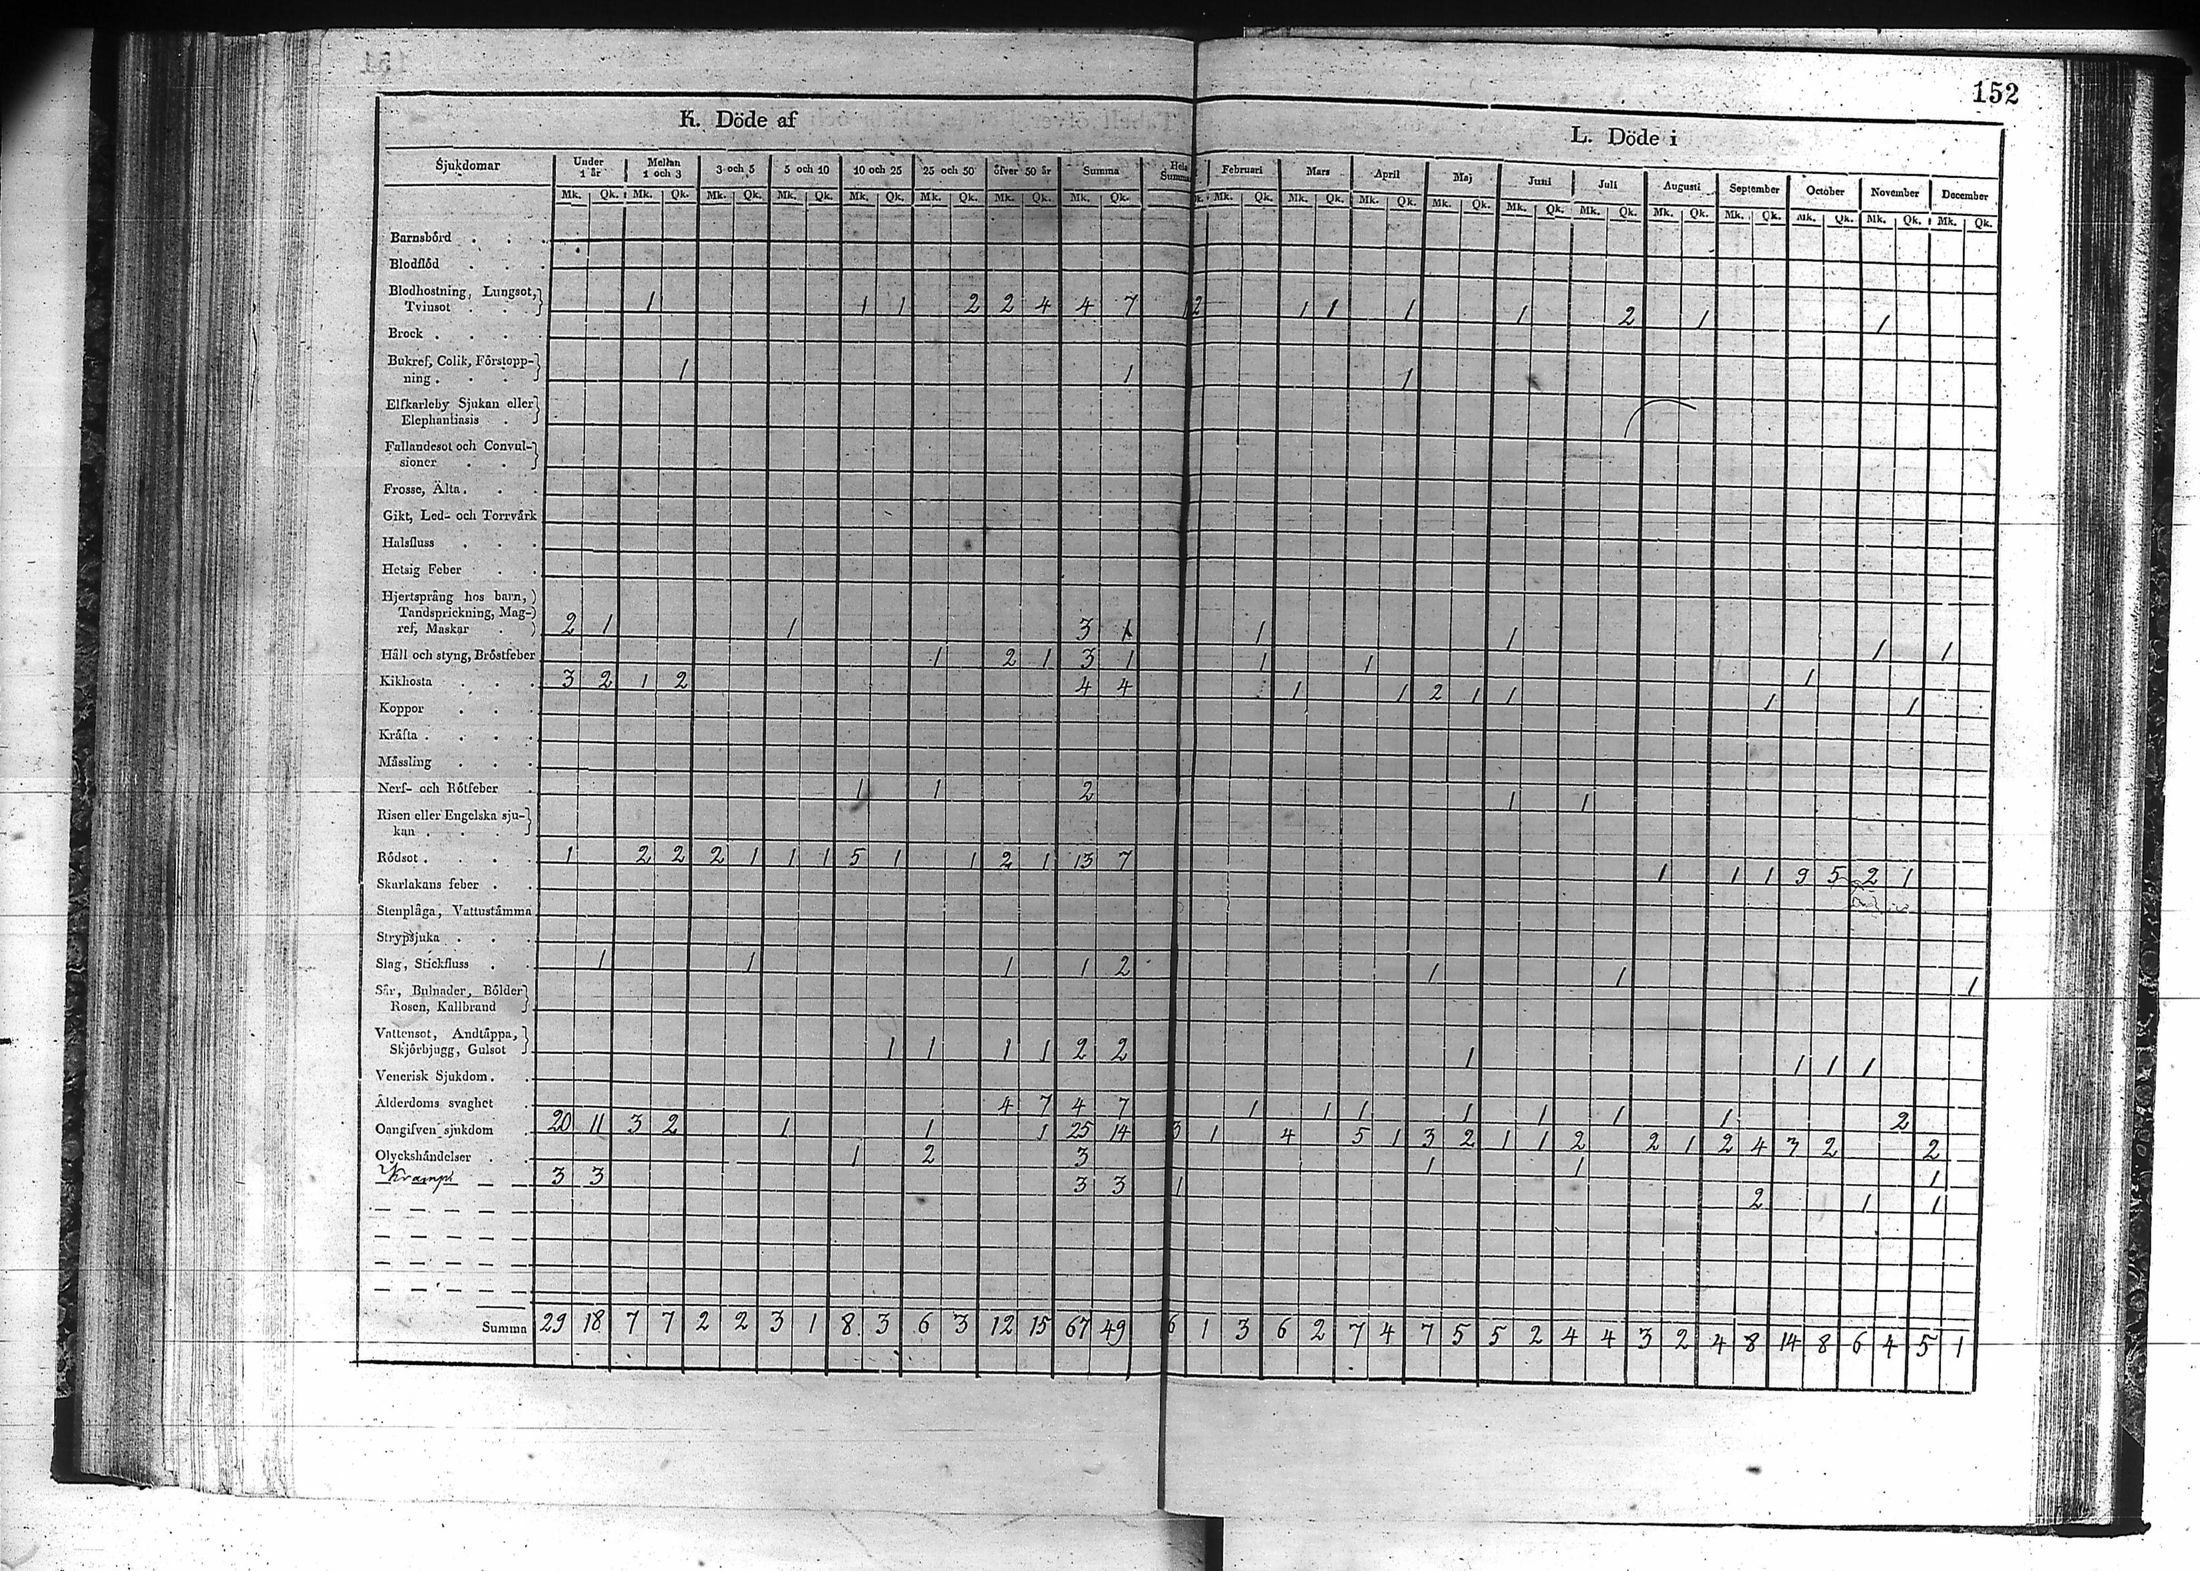 152
K. Döde af
L. Döde i
Sjukdomar Under 1 år Mellan 1 och 3 3 och 5 5 och 10 10 och 25 25 och 50 öfver 50 år Summa Hela Summa Februari Mars April Maj Juni Juli Augusti September October November December
Mk. Qk. Mk. Qk. Mk. Qk. Mk. Qk. Mk. Qk. Mk. Qk. Mk. Qk. Mk. Qk. Mk. Qk. Mk. Qk. Mk. Qk. Mk. Qk. Mk. Qk. Mk. Qk. Mk. Qk. Mk. Qk. Mk. Qk. Mk. Qk. Mk. Qk.
Barnsbörd
Blodflöd
Blodhostning, Lungsot,
Tvinsot 1 1 1 2 2 4 4 7 2 1 1 1 1 2 1 1
Brock
Bukref, Colik, Förstopp-
ning 1 1 1
Elfkarleby Sjukan eller
Elephantiasis
Fallandesot och Convul-
sioner
Frosse, Älta
Gikt, Led- och Torrvärk
Halsfluss
Hetsig Feber
Hjertsprång hos barn,
Tandsprickning, Mag-
ref, Maskar 2 1 1 3 1 1 1 1 1
Håll och styng, Bröstfeber 1 2 1 3 1 1 1 1
Kikhosta 3 2 1 2 4 4 1 1 2 1 1 1 1
Koppor
Kräfta
Mässling
Nerf- och Rötfeber 1 1 2 1 1
Risen eller Engelska sju-
kan
Rödsot 1 2 2 2 1 1 1 5 1 1 2 1 13 7 1 1 1 9 5 2 1
Skarlakans feber
Stenplåga, Vattustämma
Strypsjuka
Slag, Stickfluss 1 1 1 1 2 1 1 1
Sår, Bulnader, Bölder
Rosen, Kallbrand
Vattensot, Andtäppa,
Skjörbjugg, Gulsot 1 1 1 1 2 2 1 1 1 1
Venerisk Sjukdom
Ålderdoms svaghet 4 7 4 7 1 1 1 1 1 1 1 2
Oangifven sjukdom 20 11 3 2 1 1 1 25 14 3 1 4 5 1 3 2 1 1 2 2 1 2 4 3 2 2
Olyckshändelser 1 2 3 1 1 1
Kramp 3 3 3 3 1 2 1 1
Summa 29 18 7 7 2 2 3 1 8 3 6 3 12 15 67 49 6 1 3 6 2 7 4 7 5 5 2 4 4 3 2 4 8 14 8 6 4 5 1